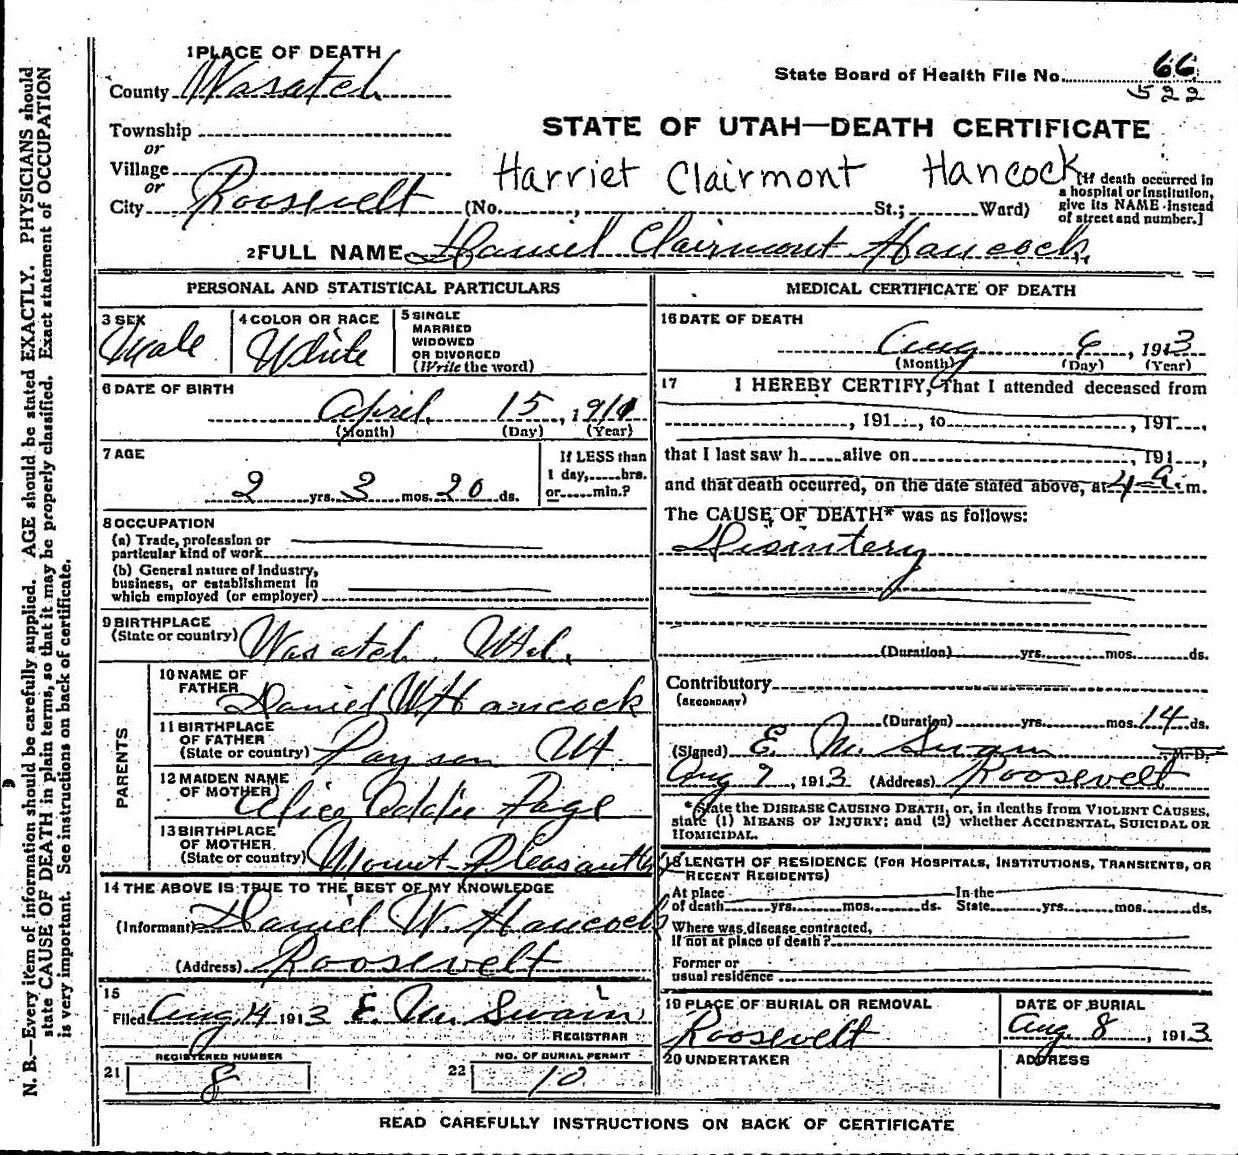 1 PLACE OF DEATH
County Wasatch
State Board of Health File No. 66
522
Township
or
Village
or
City Roosevelt (No. , St.; Ward)
STATE OF UTAH—DEATH CERTIFICATE
Harriet Clairmont Hancock
[If death occurred in
a hospital or institution,
give its NAME instead
of street and number.]
2 FULL NAME Daniel Clairmont Hancock.
PERSONAL AND STATISTICAL PARTICULARS
3 SEX
Male
4 COLOR OR RACE
White
5 SINGLE
MARRIED
WIDOWED
OR DIVORCED
(Write the word)
6 DATE OF BIRTH
April 15, 1911
(Month) (Day) (Year)
7 AGE
2 yrs. 3 mos. 20 ds.
If LESS than
1 day, hrs.
or min.?
8 OCCUPATION
(a) Trade, profession or
particular kind of work
(b) General nature of Industry,
business, or establishment in
which employed (or employer)
9 BIRTHPLACE
(State or country) Wasatch. Utah.
PARENTS
10 NAME OF
FATHER Daniel W. Hancock
11 BIRTHPLACE
OF FATHER
(State or country) Payson Ut.
12 MAIDEN NAME
OF MOTHER Alice Eddie Page
13 BIRTHPLACE
OF MOTHER
(State or country) Mount Pleasant
14 THE ABOVE IS TRUE TO THE BEST OF MY KNOWLEDGE
(Informant) Daniel W. Hancock
(Address) Roosevelt
15
Filed Aug, 14 1913 E. M. Swain
REGISTRAR
REGISTERED NUMBER
21 8
NO. OF BURIAL PERMIT
22 10
MEDICAL CERTIFICATE OF DEATH
16 DATE OF DEATH
Aug 6, 1913
(Month) (Day) (Year)
17 I HEREBY CERTIFY, That I attended deceased from
, 191 , to , 191 ,
that I last saw h alive on , 191 ,
and that death occurred, on the date stated above, at 4 a. m.
The CAUSE OF DEATH* was as follows:
Disintery
(Duration) yrs. mos. ds.
Contributory
(SECONDARY)
(Duration) yrs. mos. 14 ds.
(Signed) E. M. Swain M.D.
Aug 7, 1913 (Address) Roosevelt
*State the DISEASE CAUSING DEATH, or, in deaths from VIOLENT CAUSES,
state (1) MEANS OF INJURY; and (2) whether ACCIDENTAL, SUICIDAL OR
HOMICIDAL.
18 LENGTH OF RESIDENCE (FOR HOSPITALS, INSTITUTIONS, TRANSIENTS, OR
RECENT RESIDENTS)
At place
of death yrs. mos. ds.
In the
State yrs. mos. ds.
Where was disease contracted,
if not at place of death?
Former or
usual residence
19 PLACE OF BURIAL OR REMOVAL
Roosevelt
DATE OF BURIAL
Aug. 8, 1913
20 UNDERTAKER
ADDRESS
READ CAREFULLY INSTRUCTIONS ON BACK OF CERTIFICATE
N. B.—Every item of information should be carefully supplied. AGE should be stated EXACTLY. PHYSICIANS should
state CAUSE OF DEATH in plain terms, so that it may be properly classified. Exact statement of OCCUPATION
is very important. See instructions on back of certificate.